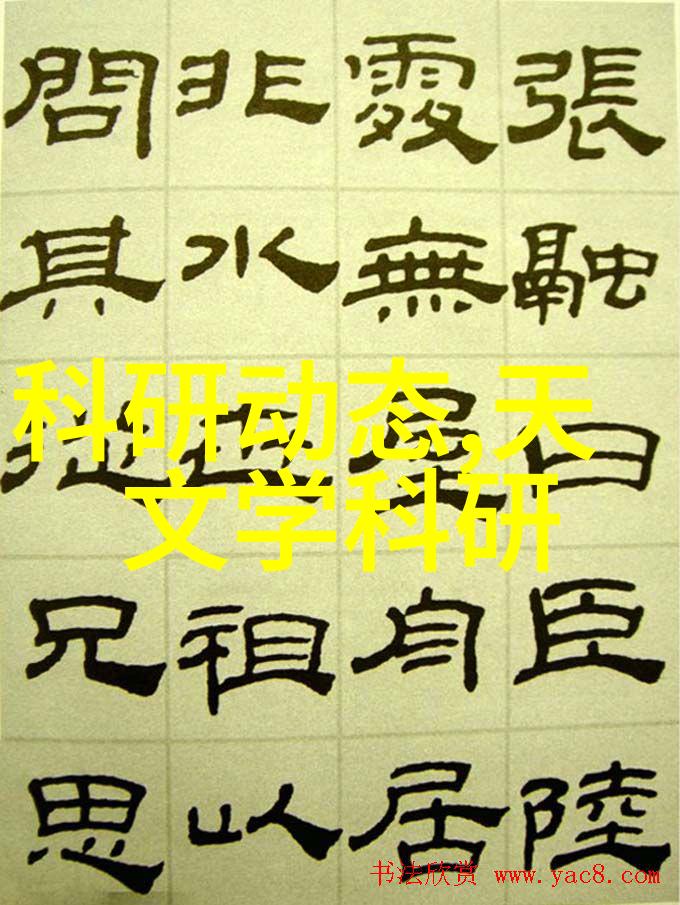 張融曰臣陸
處無屋舟居
非水祖以
問其兄思
科研动态,天
文学科研
书法欣赏 www.yac8.com